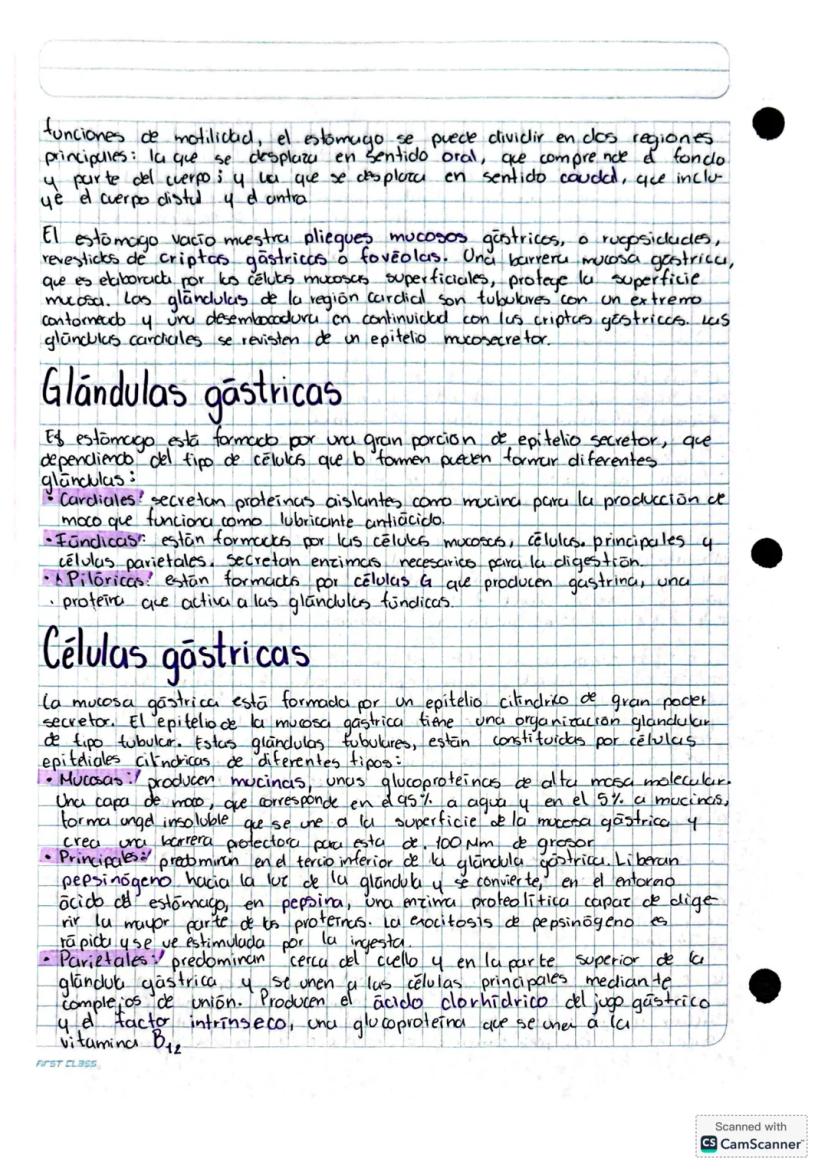 funciones de motilidad, el estómago se puede dividir en dos regiones
principales: la que se desplaza en sentido oral, que comprende el fondo
y parte del cuerpo; y la que se desplaza en sentido caudal, que inclu-
ye el cuerpo distal y el antro
El estómago vacío muestra pliegues mucosos gástricos, o rugosidades,
revestidos de criptas gástricas o fovéolas. Una barrera mucosa gástrica,
que es elaborada por las células mucosas superficiales, protege la superficie
mucosa. Las glándulas de la región cardial son tubulares con un extremo
contorneado y una desembocadura en continuidad con las criptas gástricas. Las
glándulas cardiales se revisten de un epitelio mucosecretor.
Glándulas gástricas
El estómago está formado por una gran porción de epitelio secretor, que
dependiendo del tipo de células que lo formen pueden formar diferentes
glándulas:
• Cardiales: secretan proteínas aislantes como mucina para la producción de
moco que funciona como lubricante antiácido.
• Fúndicas: están formadas por las células mucosas, células principales y
células parietales. Secretan enzimas necesarias para la digestión.
• Pilóricas: están formadas por células G que producen gastrina, una
proteína que activa a las glándulas fúndicas.
Células gástricas
La mucosa gástrica está formada por un epitelio cilíndrico de gran poder
secretor. El epitelio de la mucosa gástrica tiene una organización glandular
de tipo tubular. Estas glándulas tubulares, están constituidas por células
epiteliales cilíndricas de diferentes tipos:
• Mucosas: producen mucinas, unas glucoproteínas de alta masa molecular.
Una capa de moco, que corresponde en el 95% a agua y en el 5% a mucinas,
forma un gel insoluble que se une a la superficie de la mucosa gástrica y
crea una barrera protectora para esta de 100 Nm de grosor
• Principales: predominan en el tercio inferior de la glándula gástrica. Liberan
pepsinógeno hacia la luz de la glándula y se convierte, en el entorno
ácido del estómago, en pepsina, una enzima proteolítica capaz de dige-
rir la mayor parte de las proteínas. La exocitosis de pepsinógeno es
rápida y se ve estimulada por la ingesta.
• Parietales: predominan cerca del cuello y en la parte superior de la
glándula gástrica y se unen a las células principales mediante
complejos de unión. Producen el ácido clorhídrico del jugo gástrico
y el factor intrínseco, una glucoproteína que se une a la
vitamina B12
FIRST CLASS
Scanned with
CS CamScanner